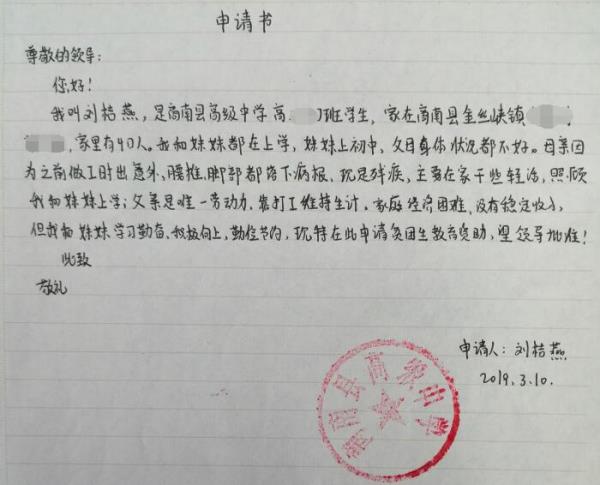 申请书
尊敬的领导:
您好!
我叫刘桔燕,是商南县高级中学高 班学生,家在商南县金丝峡镇
,家里有4口人。我和妹妹都在上学,妹妹上初中,父母身体状况都不好。母亲因
为之前做工时出意外,腰椎、脚部都落下病根,现是残疾,主要在家干些轻活,照顾
我和妹妹上学;父亲是唯一劳动力,靠打工维持生计,家庭经济困难,没有稳定收入,
但我和妹妹学习勤奋、积极向上,勤俭节约,现特在此申请贫困生教育资助,望领导批准!
此致
敬礼
申请人:刘桔燕
2019.3.10.
商南县高级中学